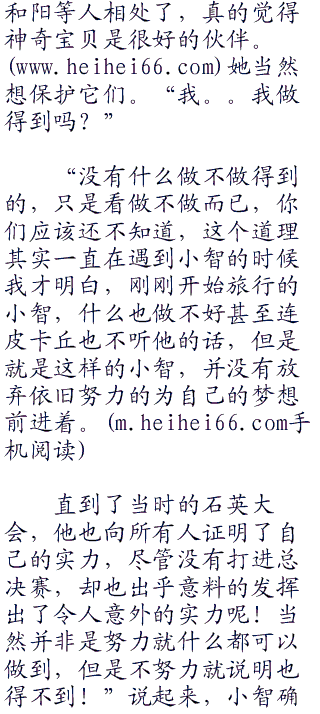 和阳等人相处了，真的觉得
神奇宝贝是很好的伙伴。
(www.heihei66.com)她当然
想保护它们。“我。。我做
得到吗？”
“没有什么做不做得到
的，只是看做不做而已，你
们应该还不知道，这个道理
其实一直在遇到小智的时候
我才明白，刚刚开始旅行的
小智，什么也做不好甚至连
皮卡丘也不听他的话，但是
就是这样的小智，并没有放
弃依旧努力的为自己的梦想
前进着。(m.heihei66.com手
机阅读)
直到了当时的石英大
会，他也向所有人证明了自
己的实力，尽管没有打进总
决赛，却也出乎意料的发挥
出了令人意外的实力呢！当
然并非是努力就什么都可以
做到，但是不努力就说明也
得不到！”说起来，小智确